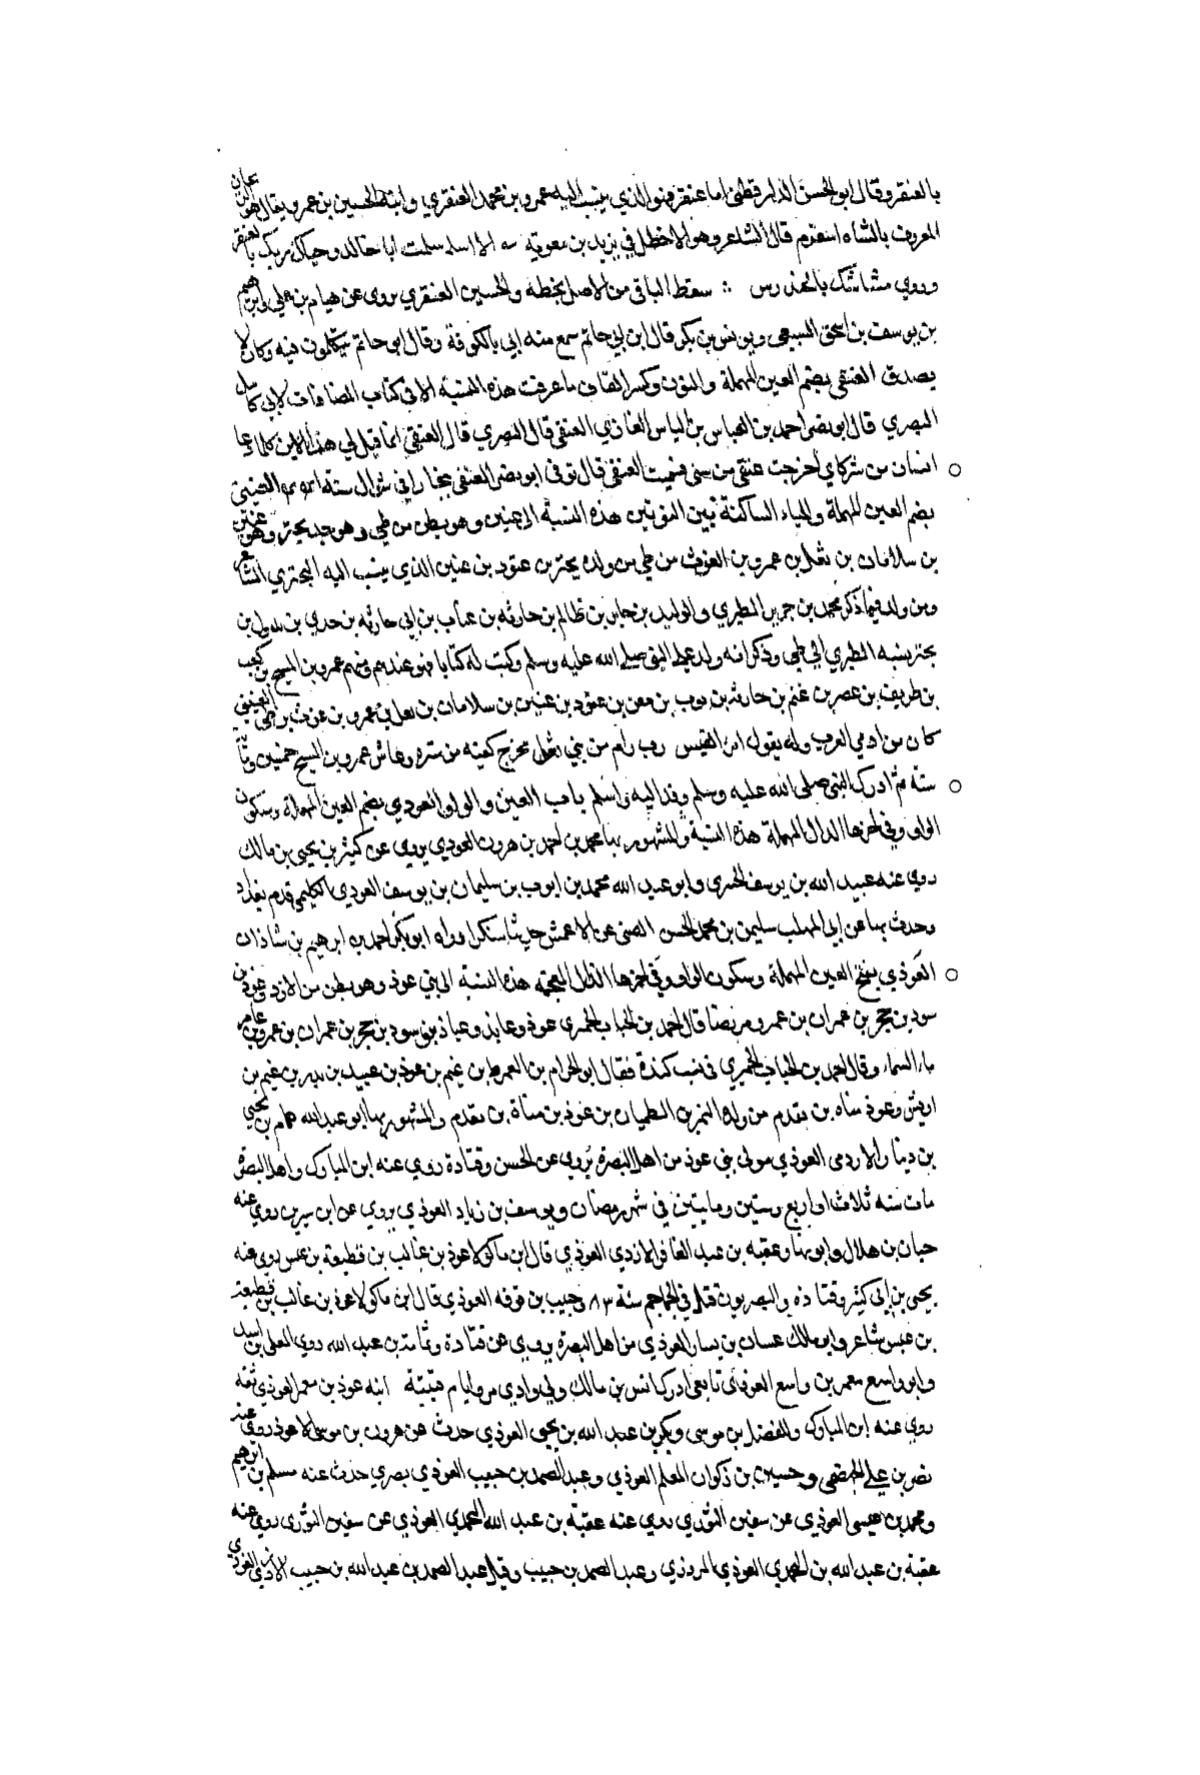 بالعنقر وقال ابو الحسن الدارقطني اما عنقز فهو الذي ينسب اليه عمرو بن محمد العنقزي وابنه الحسين بن عمرو يقال هو
المعروف بالشاه اسفرم قال الشاعر وهو الاخطل في يزيد بن معوية الا اسلم سلمت ابا خالد وحياك ربك بالعنقز
وروي مشاشك بالخندرس سقط الباقي من الاصل بخطه والحسين العنقزي يروي عن هيام بن علي وابرهيم
بن يوسف بن اسحق السبيعي ويونس بن بكير قال ابن ابي حاتم سمع منه ابي بالكوفة وقال ابو حاتم يتكلمون فيه وكان لا
يصدق العنقي بضم العين المهملة والنون وكسر القاف ما عرفت هذه النسبة الا في كتاب المضافات لابي كامل
البصري قال ابو نصر احمد بن العباس بن الياس الغازي العنقي قال البصري قال العنقي انما قيل لي هذا لان
انسان من شركاي اخرجت عنقي من فسميت العنقي قال توفي ابو نصر العنقي ببخارا في شوال سنة العنيني
بضم العين المهملة والياء الساكنة بين النونين هذه النسبة الى عنين وهو بطن من طي وهو جد بحتر وهو عنين
بن سلامان بن ثعل بن عمرو بن الغوث من طي من ولده بحتر بن عتود بن عنين الذي ينسب اليه البحتري الشاعر
ومن ولده فيما ذكر محمد بن جرير الطبري والوليد بن جابر بن ظالم بن حارثه بن عتاب بن ابي حارثه بن جدي بن تدول بن
بحتر ينسبه الطبري الى طي وذكر انه وفد على النبي صلى الله عليه وسلم وكتب له كتابا فهو عندهم ومنهم عمرو بن المسبح بن كعب
بن طريف بن عصر بن غنم بن حارثه بن ثوب بن معن بن عتود بن عنين بن سلامان بن ثعل بن عمرو بن غوث بن طي العنيني
كان من ارمي العرب وله يقول امرؤ القيس رب رام من بني ثعل مخرج كفيه من ستره وعاش عمرو بن المسبح خمسين وماة
سنة ثم ادرك النبي صلى الله عليه وسلم وفد اليه واسلم باب العين والواو العودي بضم العين المهملة وسكون
الواو وفي اخرها الدال المهملة هذه النسبة والمشهور بها محمد بن احمد بن هرون العودي يروي عن كثير بن يحيى بن مالك
روى عنه عبيد الله بن يوسف الجبيري وابو عبد الله محمد بن ايوب بن سليمان بن يوسف العودي الكليمي قدم بغداد
وحدث بها عن ابي المهلب سليمن بن محمد بن الحسن الصنى عن الاعمش حديثا منكرا رواه ابو بكر احمد بن ابرهيم بن شاذان
العوذي بفتح العين المهملة وسكون الواو وفي اخرها الذال المعجمة هذه النسبة الى بني عوذ وهو بطن من الازد وعوذ بن
سود بن حجر بن عمران بن عمرو مزيقيا قال احمد بن الحباب الحميري عوذ وعايذ وعياذ بنو سود بن حجر بن عمران بن عمرو بن عامر
ماء السماء وقال احمد بن الحباب الحميري في نسب كندة فقال ابو الحرام بن العمرط بن غنم بن عوذ بن عبيد بن بدر بن غنم بن
اريش وعوذ مناه بن يقدم من ولده النمر بن الطمثان بن عوذ بن مناة بن يقدم والمشهور بها ابو عبد الله همام بن يحيى
بن دينار الازدي العوذي مولى بني عوذ من اهل البصرة يروي عن الحسن وقتادة روى عنه ابن المبارك واهل البصرة
مات سنه ثلاث او اربع وستين ومايتين في شهر رمضان ويوسف بن زياد العوذي يروي عن ابن سيرين روى عنه
حبان بن هلال وابو نهار عقبه بن عبد الغافر الازدي العوذي قال ابن ماكولا عوذ بن غالب بن قطيعة بن عبس روى عنه
يحيى بن ابي كثير وقتاده والبصريون قتل في الجماجم سنة ٨٣ وحبيب بن قرفه العوذي قال ابن ماكولا عوذ بن غالب بن قطيعة
بن عبس شاعر وابو مالك غسان بن يسار العوذي من اهل البصرة يروي عن قتادة وثمامة بن عبد الله روى المعلى بن اسد
وابو واسع معمر بن واسع العوذي تابعي ادرك انس بن مالك ولي وادي مرو ايام قتيبة ابنه عوذ بن معمر العوذي ثقه
روي عنه ابن المبارك والفضل بن موسى وبكر بن عبد الله بن يحيى العوذي حدث عن هرون بن موسى الاعور روى عنه
نصر بن علي الجهضمي وحسين بن ذكوان المعلم العوذي وعبد الصمد بن حبيب العوذي بصري حدث عنه مسلم بن ابرهيم
ومحمد بن عيسى العوذي عن سفين الثوري روى عنه عقبة بن عبد الله اليحمدي العوذي عن سفين الثوري روى عنه
عقبة بن عبد الله بن اليحمدي العوذي المروزي وعبد الصمد بن حبيب وقيل عبد الصمد بن عبد الله بن حبيب الازدي العوذي